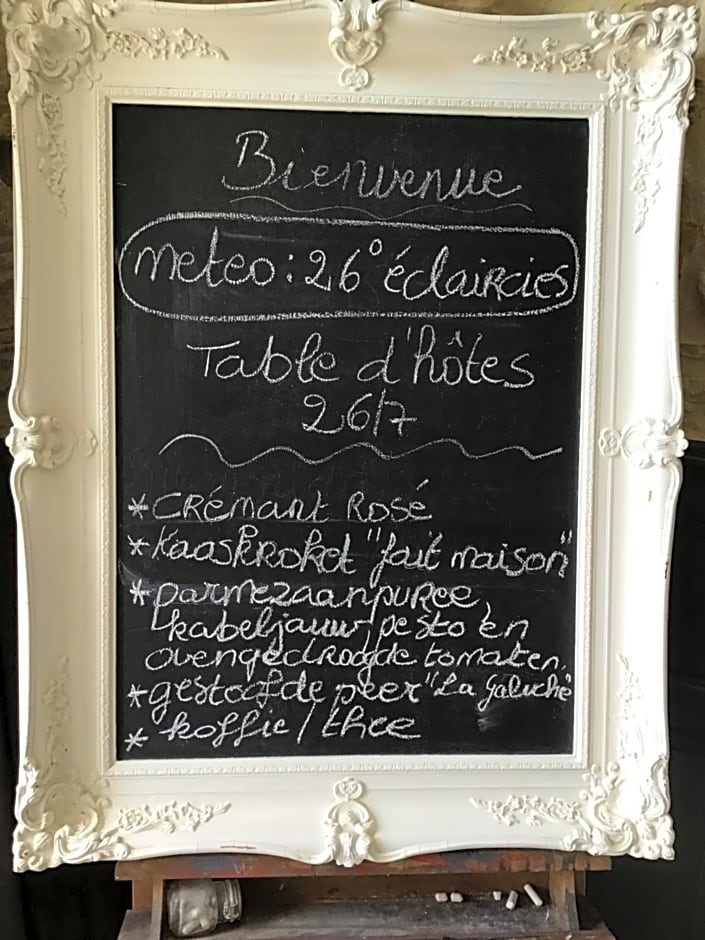 Bienvenue
meteo: 26° éclaircies
Table d'hôtes
26/7
* CRÉmant Rosé
* Kaaskroket "fait maison"
* parmezaanpuree,
kabeljauw, pesto en
ovengedroogde tomaten.
* gestoofde peer "La Galuche"
* koffie / thee